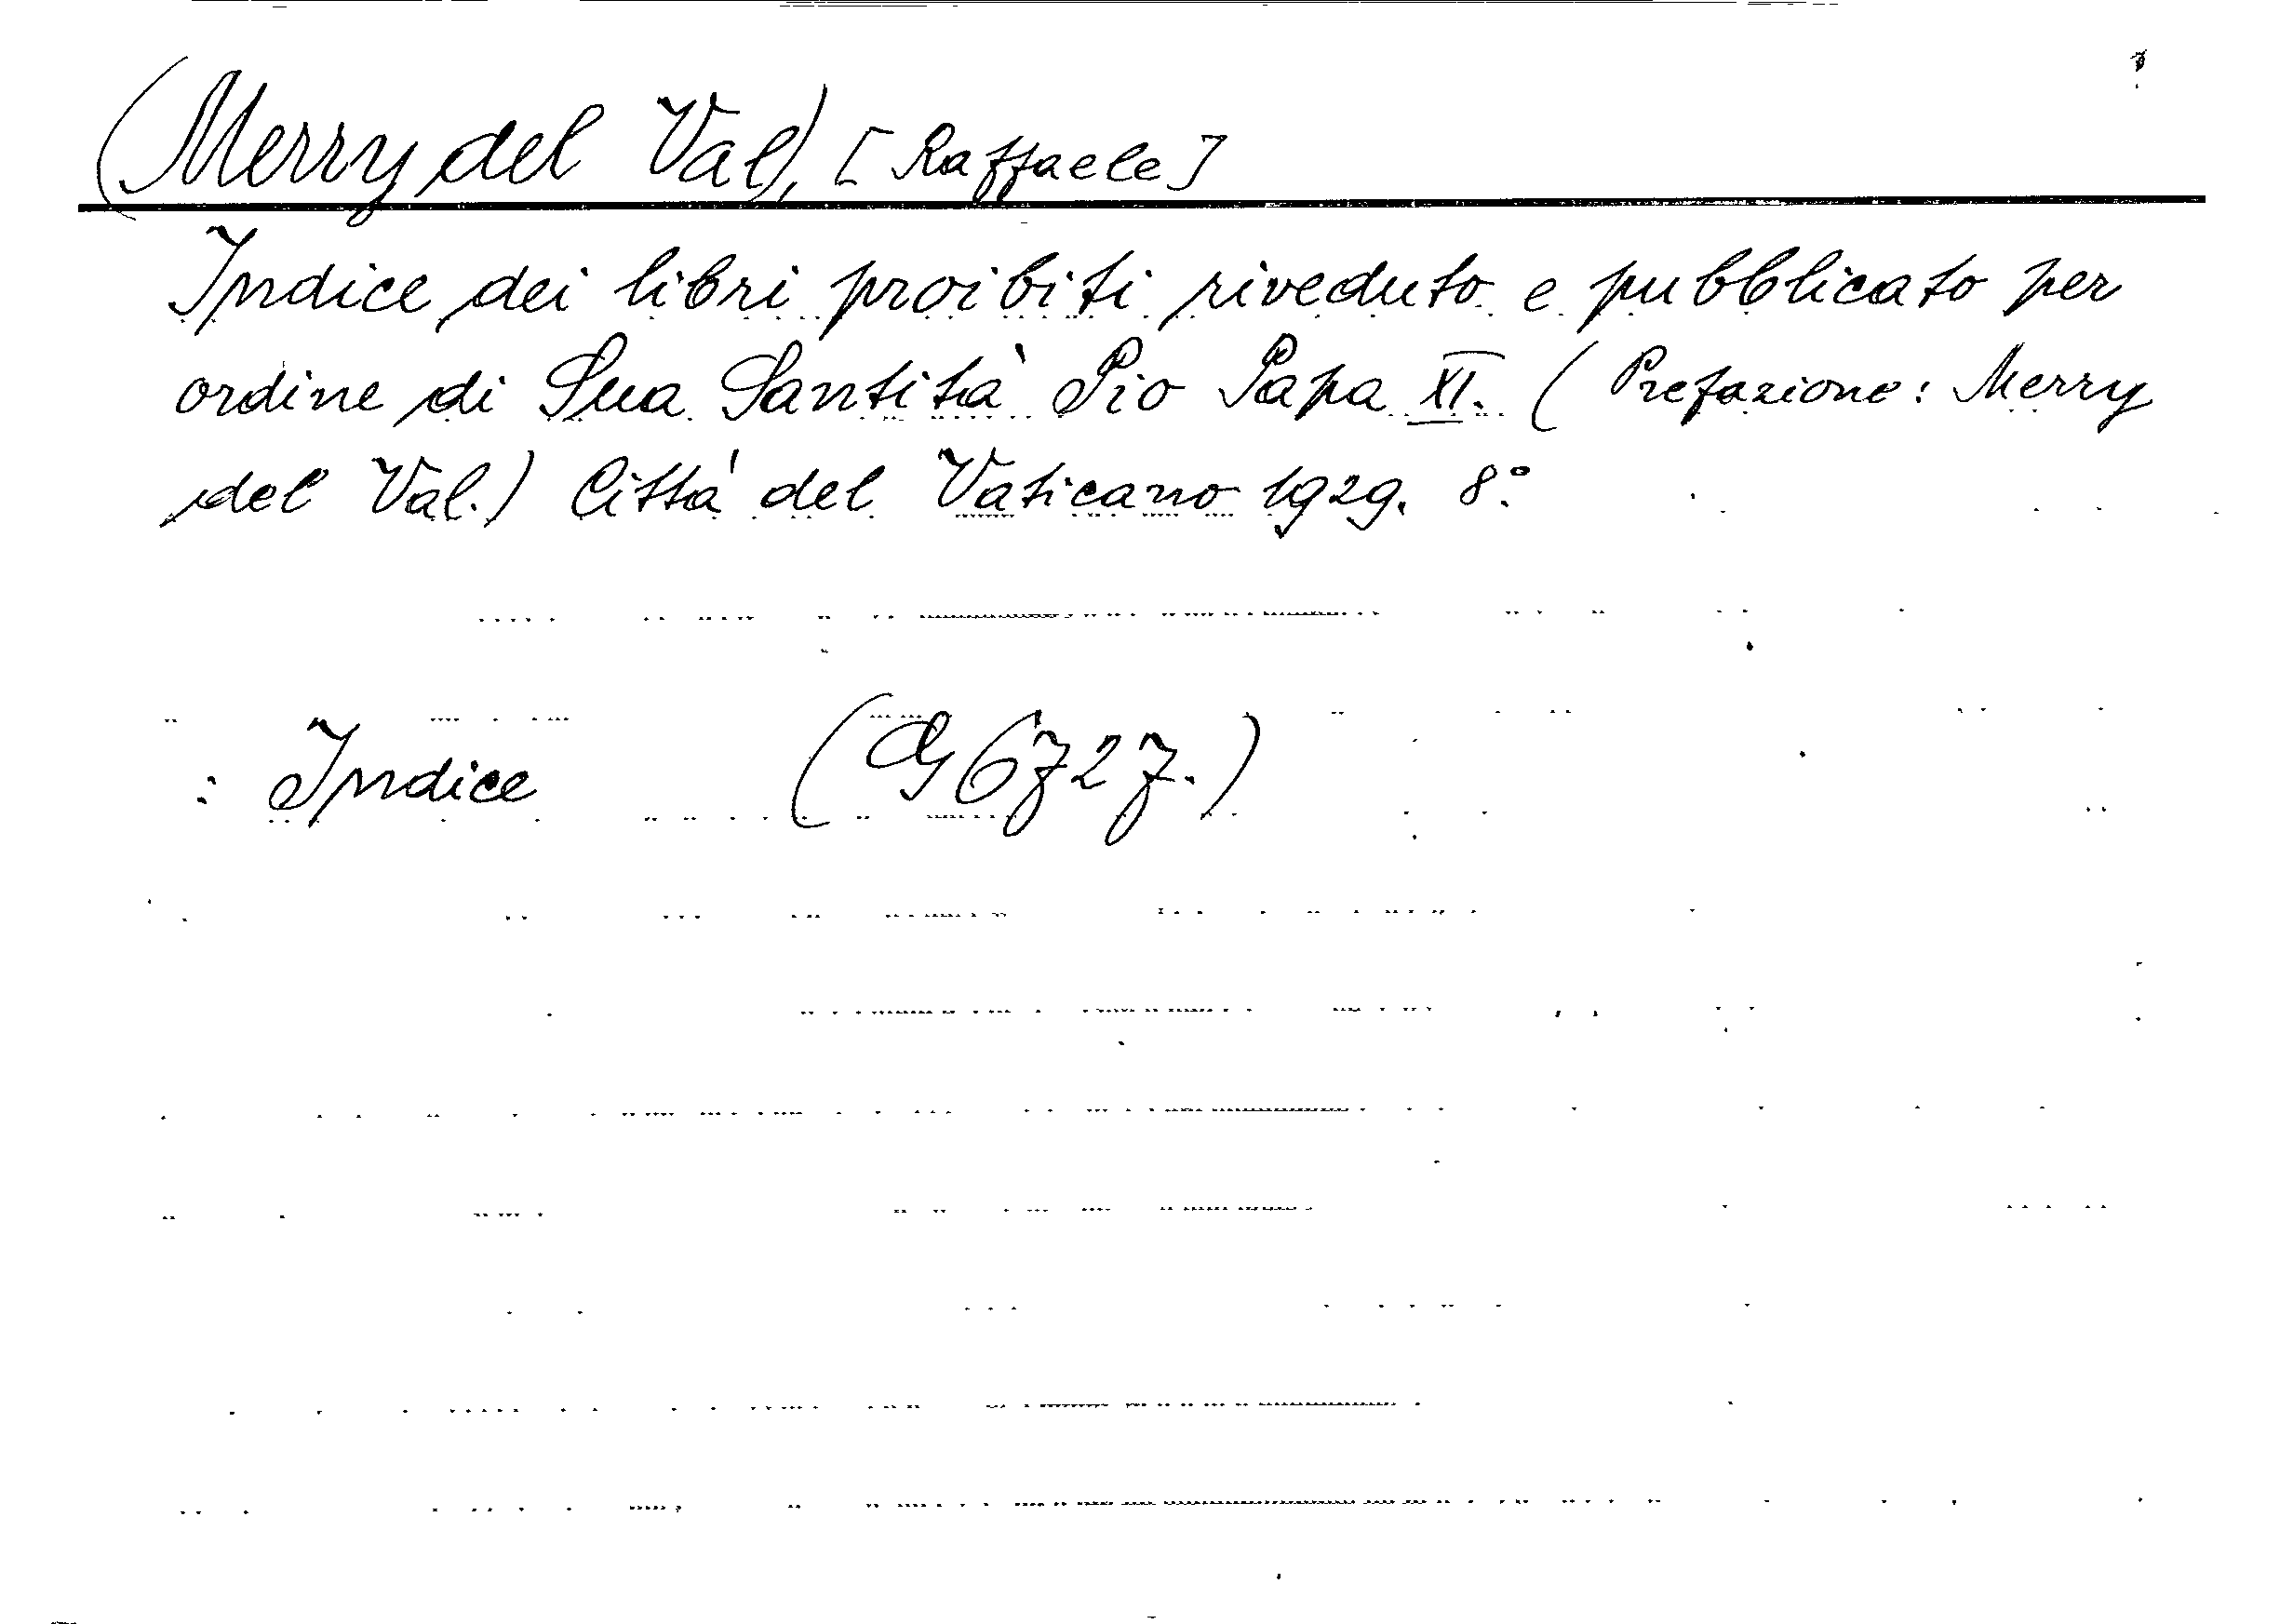 (Merry del Val), [Raffaele]
Indice dei libri proibiti riveduto e pubblicato per
ordine di Sua Santità Pio Papa XI. (Prefazione: Merry
del Val.) Città del Vaticano 1929. 8°.
: Indice (G 6727.)